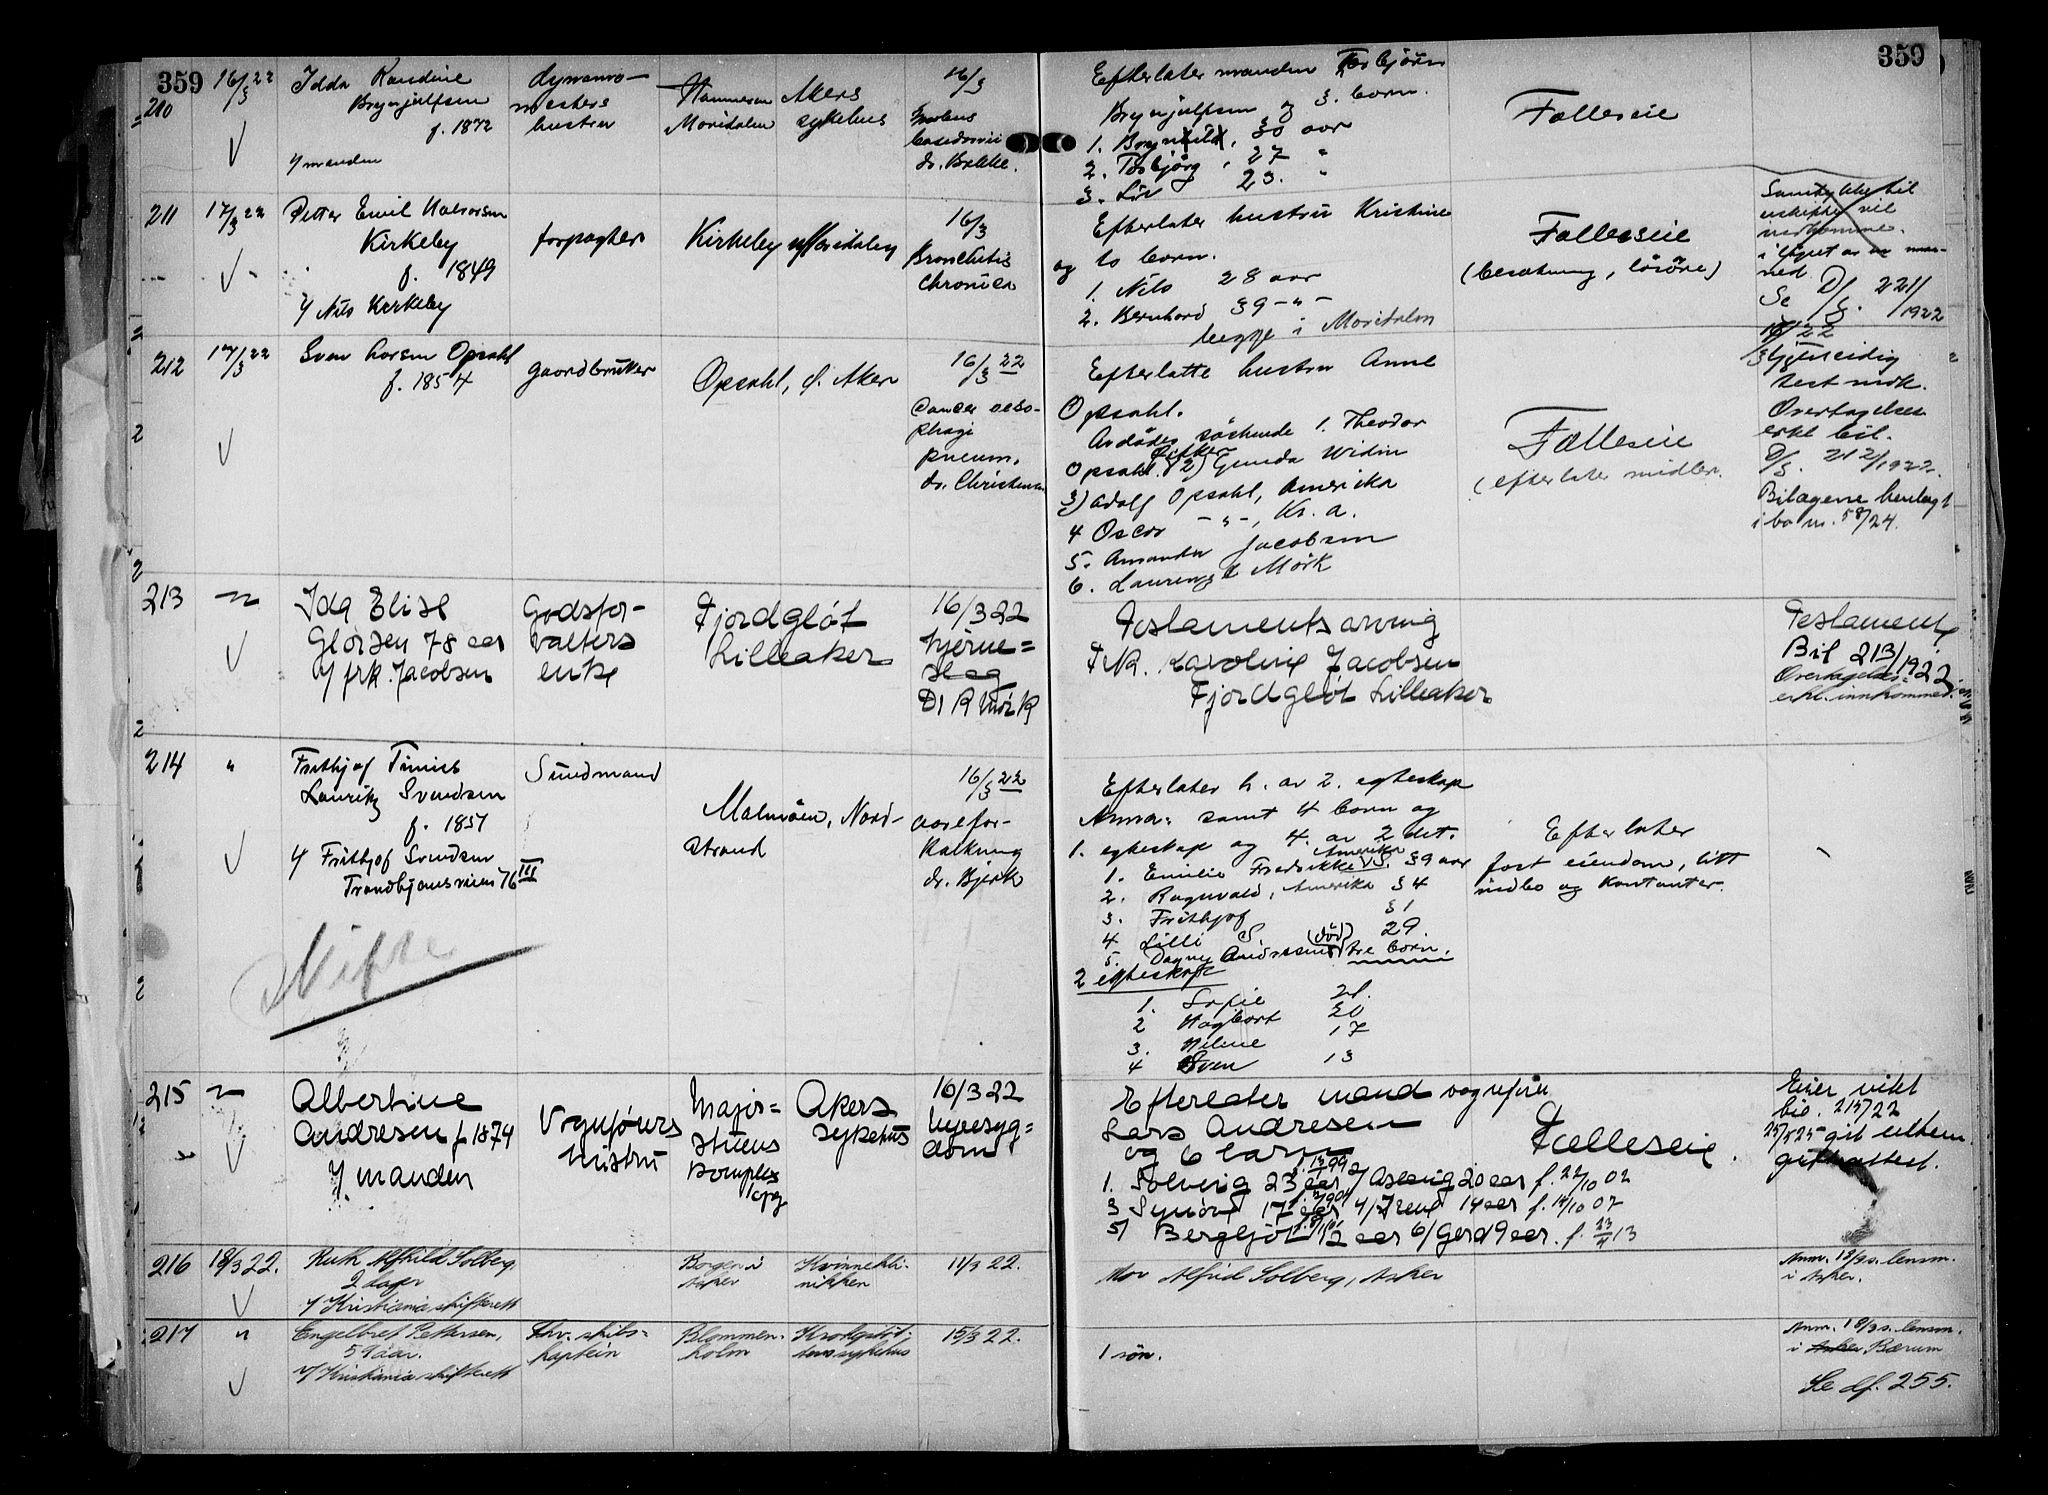 359
359
210
16/3 22
Idda Randine
Brynjulfsen
f. 1872
v/ manden
dynamo-
mesters
hustru
Hammeren
Maridalen
Akers
sykehus
16/3
Morbus
basedowii
dr. Bakke.
Efterlater manden Torbjörn
Brynjulfsen og 3. born.
1. Brynhild, 30 aar
2. Torbjörg, 27 "
3. Liv 23. "
Fælleseie
211
17/3 22
Petter Emil Halvorsen
Kirkeby
f. 1849
v/ Nils Kirkeby
forpagter
Kirkeby i Maridalen
16/3
Bronchitis
chronica
Efterlater hustru Kristine
og to born.
1. Nils 28 aar
2. Bernhard 39 -"-
begge i Maridalen
Fælleseie
(besætning, lösöre)
Samtykke til
uskiftet vil
vedkomme
i löpet av en maa-
ned
Se D/S. 221/
1922
212
17/3 22
Sven Larsen Opsahl
f. 1854
gaardbruker
Opsahl, Ö. Aker
16/3 22
Cancer oeso-
phagi
pneum.
dr. Christensen
Efterlatte hustru Anne
Opsahl.
Avdödes söskende 1. Theodor
Opsahl. 2) Gunda Widin
3) Adolf Opsahl, Amerika
4 Oscar -"-, Kr.a.
5. Amanda Jacobsen
6. Laurengd Mörk
Fælleseie
(efterlater midler.
Gjensidig
test. mdt.
Overtagelses
erkl. bil.
D/S. 212/1922.
Bilagene henlagt
i bo nr. 58/24.
213
Ida Elise
Glörsen 78 aar
v/ frk. Jacobsen
Godsfor-
valters
enke
Fjordgløt
Lilleaker
16/3 22
hjerne=
slag
Dr R Mörk
Testamentsarving
Frk. Karoline Jacobsen
Fjordgløt Lilleaker
Testamente
Bil 213/1922
Overtagelses=
erkl. innkommet.
214
"
Frithjof Tinius
Lauritz Svendsen
f. 1857
v/ Frithjof Svendsen
Trondhjemsveien 76 III
Skifte
Sundmand
Malmöen, Nord-
strand
16/3 22
aarefor-
kalkning
dr. Bjerk
Efterlater h. av 2. egteskap
Anna: samt 4 born og
1. egteskap og 4. av 2 det.
1. Emilie Fredrikke S. Amerika 39 aar
2. Ragnvald, Amerika 34
3. Frithjof 31
4 Lilli S. 29
5. Dagny Andressen (död) tre born.
2 egteskap
1. Sofie 21.
2 Hagbart 20
3. Helene 17
4 Sven 13
Efterlater
fast eiendom, litt
indbo og kontanter.
215
Albertine
Andresen f 1874
v/ manden
Vognførers
hustru
Major=
stuens
kompleks
Akers
sykehus
16/3 22
nyresyg=
dom
Efterlater mand vognfører
Lars Andresen
og 6 barn
1. Solveig 23 aar 2/ Aslaug 20 aar f. 22/10 02
3 Synöve 17 aar 4/ Irene 14 aar f. 14/10 07
5/ Bergljöt 12 aar 6/ Gerd 9 aar. f. 23/4 13
Fælleseie.
Eier vikt
bio. 215/22
25/5 25 git uthen.
giftattest.
216
18/3 22.
Ruth Alfhild Solberg,
2 dager
v/ Kristiania skifterett
Bogen i
Asker
Kvinnekli-
nikken
11/3 22.
Mor Alfrid Solberg, Asker
Anm. 18/3 s. lensm.
i Asker.
217
"
Engelbret Pettersen,
59 aar.
v/ Kristiania skifterett
fhv. skibs=
kaptein
Blommen-
holm
Krohgstöt-
tens sykehus
15/3 22.
1 sön.
Anm. 18/3 s. lensm.
i Asker Bærum
Se df. 255.